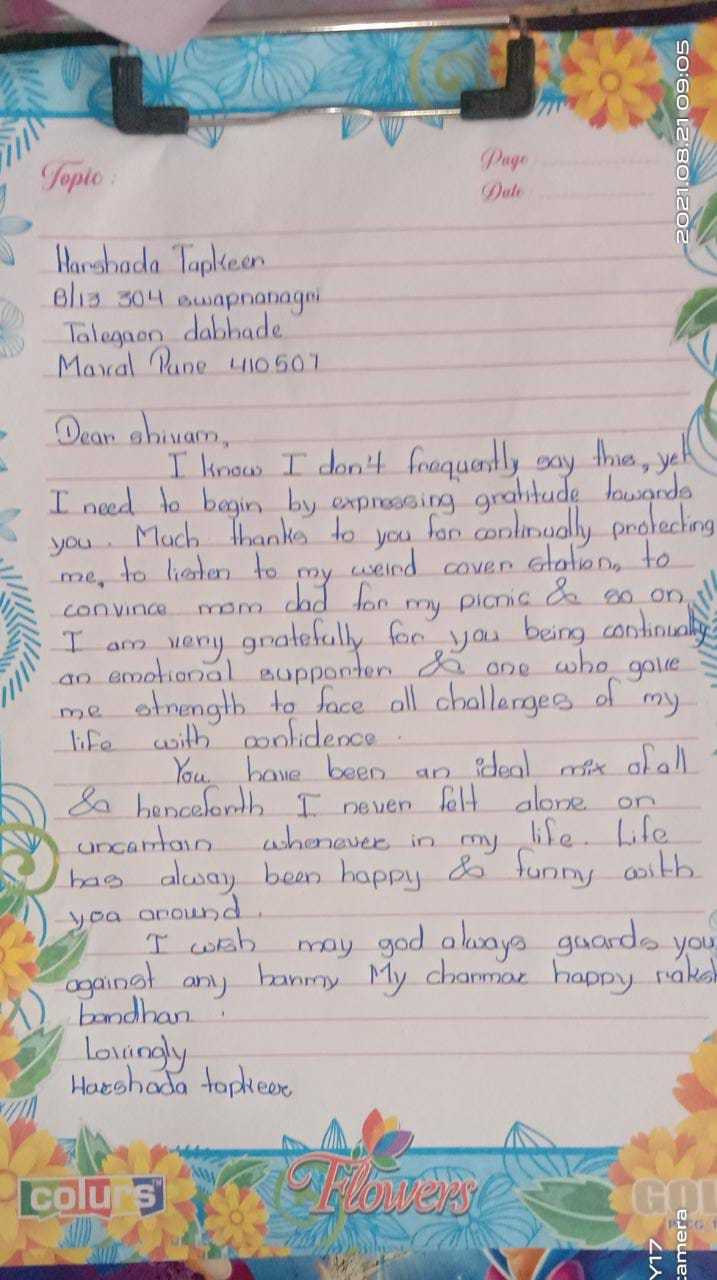 Topic :
Page
Date
Harshada Tapkeer
B/13 304 swapnanagri
Talegaon dabhade
Maval Pune 410507
Dear shivam,
I know I don't frequently say this, yet
I need to begin by expressing gratitude towards
you. Much thanks to you for continually protecting
me, to listen to my weird cover station, to
convince mom dad for my picnic & so on
I am very gratefully for you being continually
an emotional supporter & one who gave
me strength to face all challenges of my
life with confidence.
You have been an ideal mix of all
& henceforth I never felt alone or
uncertain whenever in my life. Life
has alway been happy & funny with
you around.
I wish may god always guards you
against any My happy raksh
bandhan.
Lovingly
Harshada tapkeer
colurs
Flowers
GOL
2021.08.21 09:05
Y17
amera